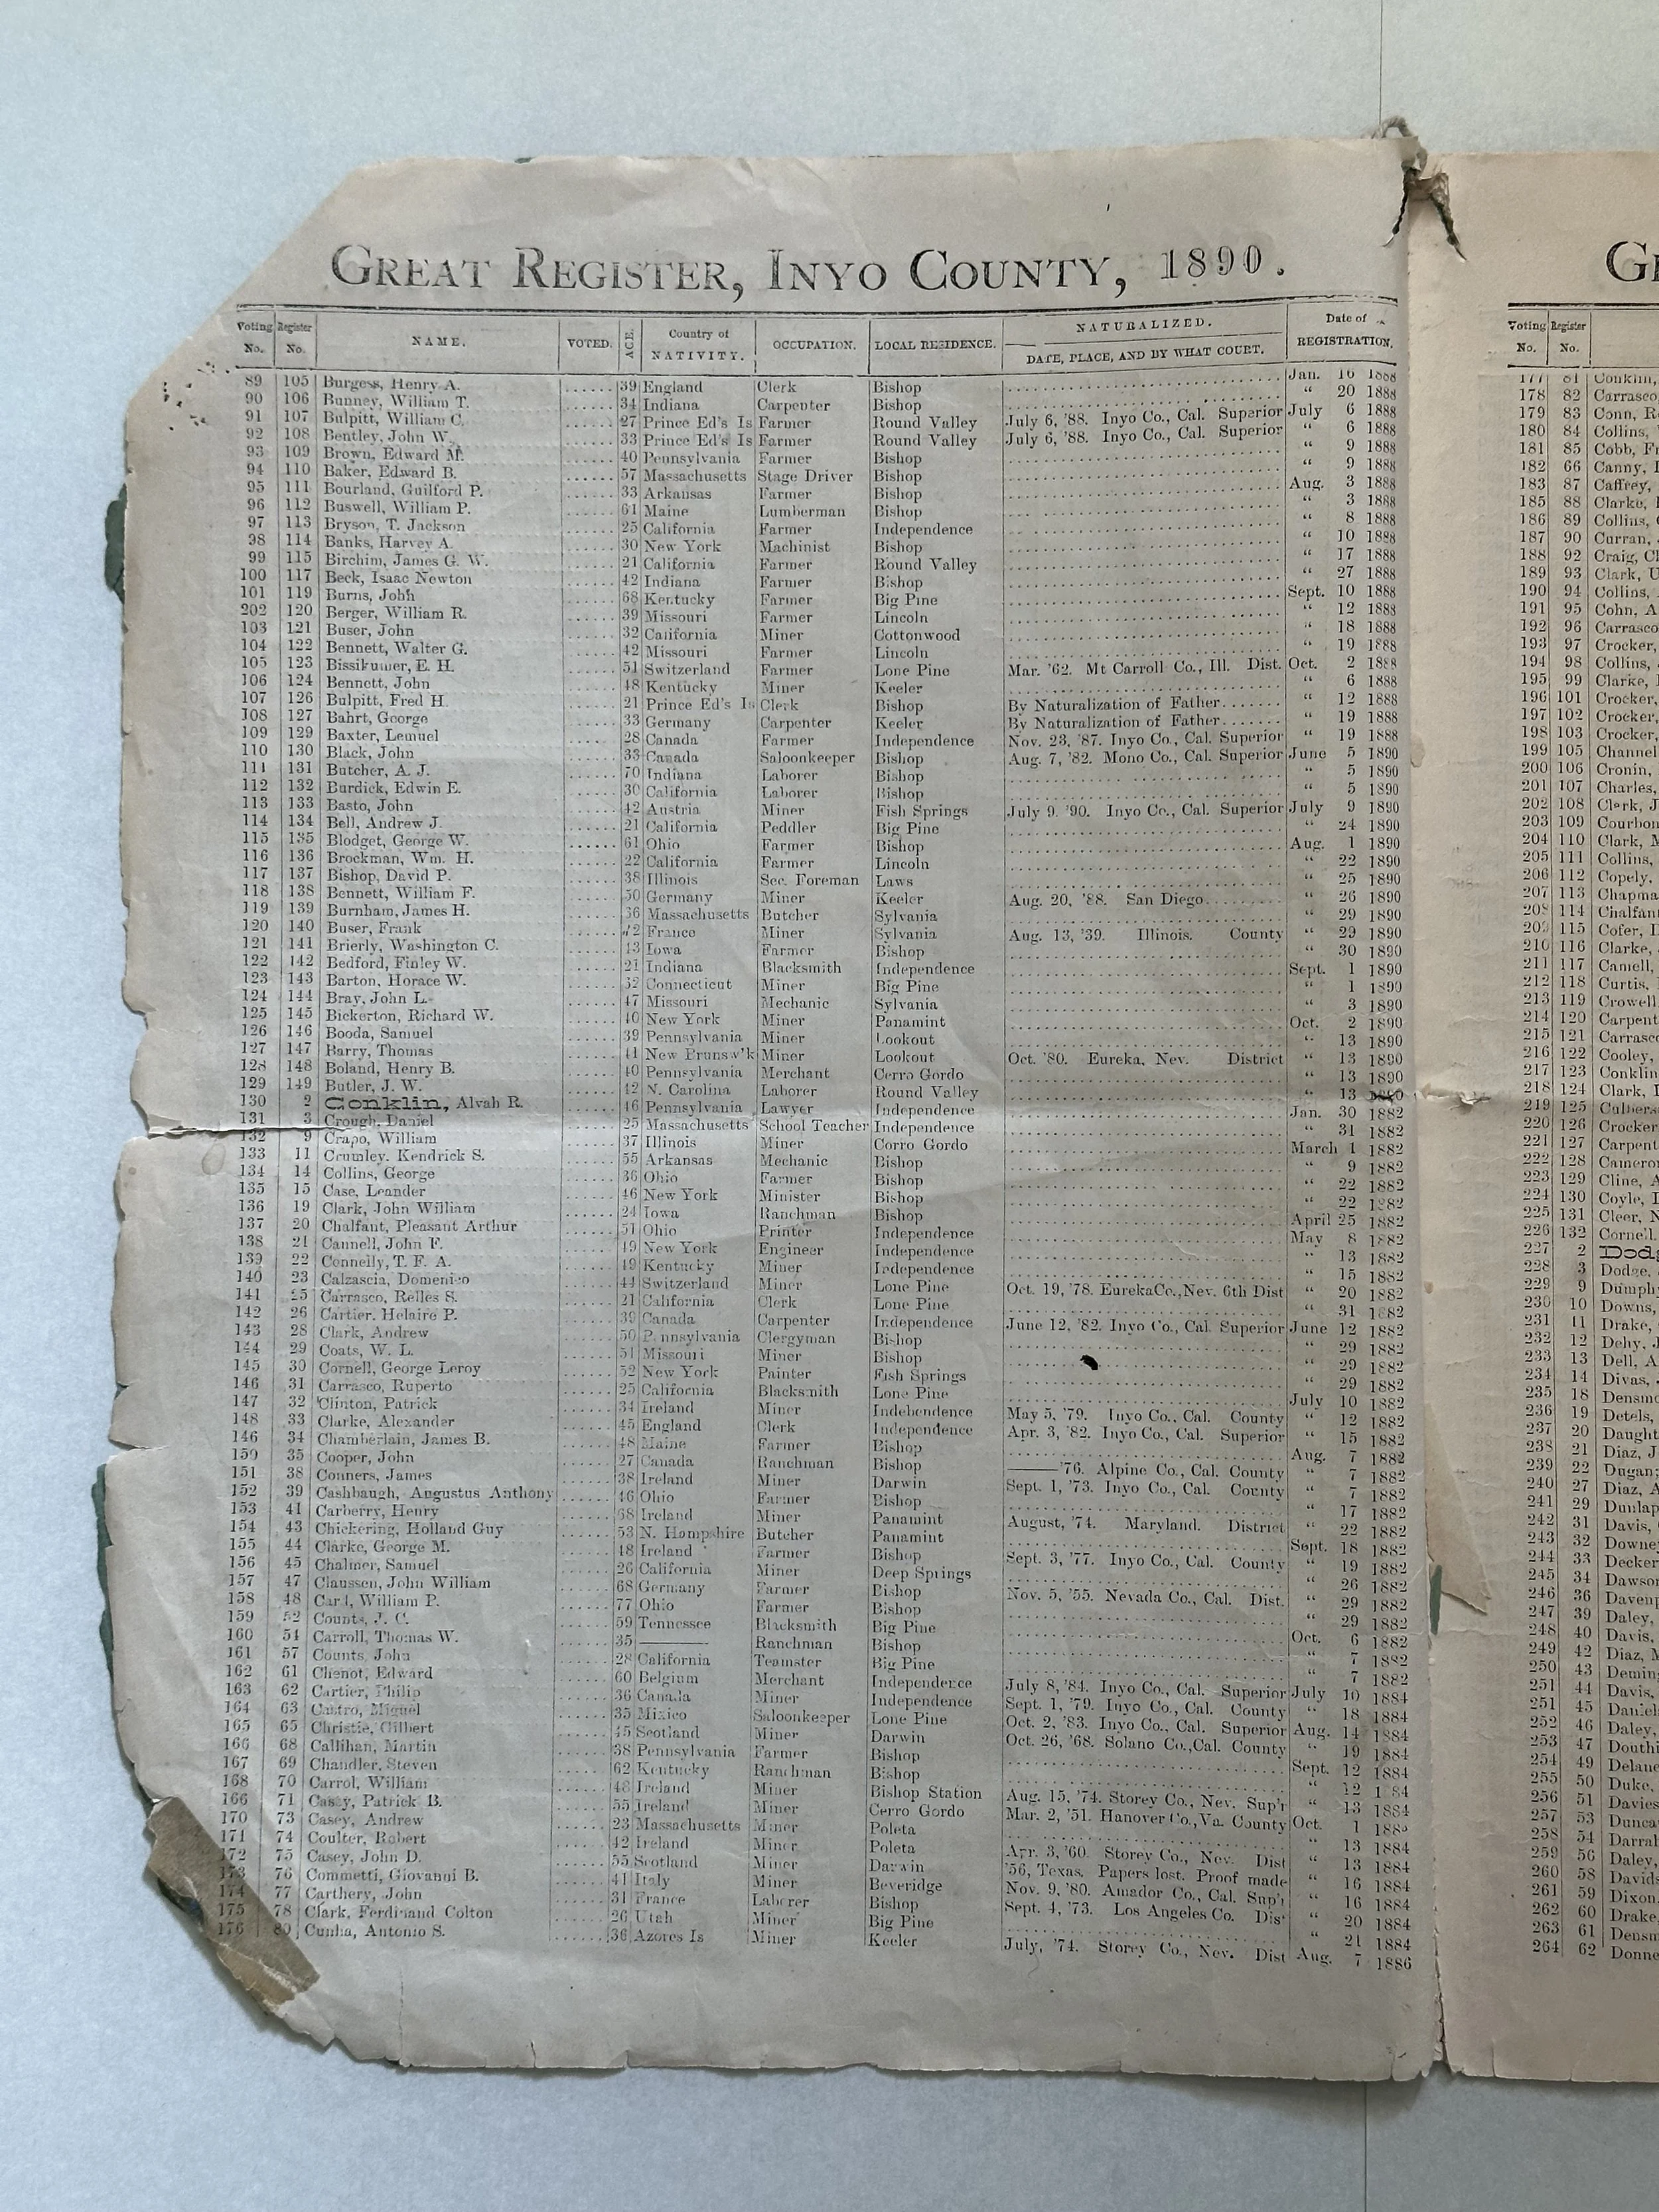 GREAT REGISTER, INYO COUNTY, 1890.
Voting No. Register No. NAME. VOTED. AGE. Country of NATIVITY. OCCUPATION. LOCAL RESIDENCE. NATURALIZED. DATE, PLACE, AND BY WHAT COURT. Date of REGISTRATION.
89 105 Burgess, Henry A. ...... 39 England Clerk Bishop Jan. 16 1888
90 106 Bunney, William T. ...... 34 Indiana Carpenter Bishop “ 20 1888
91 107 Bulpitt, William C. ...... 27 Prince Ed's Is Farmer Round Valley July 6, '88. Inyo Co., Cal. Superior July 6 1888
92 108 Bentley, John W. ...... 33 Prince Ed's Is Farmer Round Valley July 6, '88. Inyo Co., Cal. Superior “ 6 1888
93 109 Brown, Edward M. ...... 40 Pennsylvania Farmer Bishop “ 9 1888
94 110 Baker, Edward B. ...... 57 Massachusetts Stage Driver Bishop “ 9 1888
95 111 Bourland, Guilford P. ...... 33 Arkansas Farmer Bishop Aug. 3 1888
96 112 Buswell, William P. ...... 61 Maine Lumberman Bishop “ 3 1888
97 113 Bryson, T. Jackson ...... 25 California Farmer Independence “ 8 1888
98 114 Banks, Harvey A. ...... 30 New York Machinist Bishop “ 10 1888
99 115 Birchim, James G. W. ...... 21 California Farmer Round Valley “ 17 1888
100 117 Beck, Isaac Newton ...... 42 Indiana Farmer Bishop “ 27 1888
101 119 Burns, John ...... 68 Kentucky Farmer Big Pine Sept. 10 1888
202 120 Berger, William R. ...... 39 Missouri Farmer Lincoln “ 12 1888
103 121 Buser, John ...... 32 California Miner Cottonwood “ 18 1888
104 122 Bennett, Walter G. ...... 42 Missouri Farmer Lincoln “ 19 1888
105 123 Bissikumer, E. H. ...... 51 Switzerland Farmer Lone Pine Mar. '62. Mt Carroll Co., Ill. Dist. Oct. 2 1888
106 124 Bennett, John ...... 48 Kentucky Miner Keeler “ 6 1888
107 126 Bulpitt, Fred H. ...... 21 Prince Ed's Is Clerk Bishop By Naturalization of Father....... “ 12 1888
108 127 Bahrt, George ...... 33 Germany Carpenter Keeler By Naturalization of Father....... “ 19 1888
109 129 Baxter, Lemuel ...... 28 Canada Farmer Independence Nov. 23, '87. Inyo Co., Cal. Superior “ 19 1888
110 130 Black, John ...... 33 Canada Saloonkeeper Bishop Aug. 7, '82. Mono Co., Cal. Superior June 5 1890
111 131 Butcher, A. J. ...... 70 Indiana Laborer Bishop “ 5 1890
112 132 Burdick, Edwin E. ...... 30 California Laborer Bishop “ 5 1890
113 133 Basto, John ...... 42 Austria Miner Fish Springs July 9. '90. Inyo Co., Cal. Superior July 9 1890
114 134 Bell, Andrew J. ...... 21 California Peddler Big Pine “ 24 1890
115 135 Blodget, George W. ...... 61 Ohio Farmer Bishop Aug. 1 1890
116 136 Brockman, Wm. H. ...... 22 California Farmer Lincoln “ 22 1890
117 137 Bishop, David P. ...... 38 Illinois Sec. Foreman Laws “ 25 1890
118 138 Bennett, William F. ...... 50 Germany Miner Keeler Aug. 20, '88. San Diego......... “ 26 1890
119 139 Burnham, James H. ...... 36 Massachusetts Butcher Sylvania “ 29 1890
120 140 Buser, Frank ...... 72 France Miner Sylvania Aug. 13, '39. Illinois. County “ 29 1890
121 141 Brierly, Washington C. ...... 43 Iowa Farmer Bishop “ 30 1890
122 142 Bedford, Finley W. ...... 21 Indiana Blacksmith Independence Sept. 1 1890
123 143 Barton, Horace W. ...... 32 Connecticut Miner Big Pine “ 1 1890
124 144 Bray, John L. ...... 47 Missouri Mechanic Sylvania “ 3 1890
125 145 Bickerton, Richard W. ...... 40 New York Miner Panamint Oct. 2 1890
126 146 Booda, Samuel ...... 39 Pennsylvania Miner Lookout “ 13 1890
127 147 Barry, Thomas ...... 41 New Brunsw'k Miner Lookout Oct. '80. Eureka, Nev. District “ 13 1890
128 148 Boland, Henry B. ...... 40 Pennsylvania Merchant Cerro Gordo “ 13 1890
129 149 Butler, J. W. ...... 42 N. Carolina Laborer Round Valley “ 13 1890
130 2 Conklin, Alvah R. ...... 46 Pennsylvania Lawyer Independence Jan. 30 1882
131 3 Crough, Daniel ...... 25 Massachusetts School Teacher Independence “ 31 1882
132 9 Crapo, William ...... 37 Illinois Miner Corro Gordo March 1 1882
133 11 Crumley. Kendrick S. ...... 55 Arkansas Mechanic Bishop “ 9 1882
134 14 Collins, George ...... 36 Ohio Farmer Bishop “ 22 1882
135 15 Case, Leander ...... 46 New York Minister Bishop “ 22 1882
136 19 Clark, John William ...... 24 Iowa Ranchman Bishop April 25 1882
137 20 Chalfant, Pleasant Arthur ...... 51 Ohio Printer Independence May 8 1882
138 21 Cannell, John F. ...... 49 New York Engineer Independence “ 13 1882
139 22 Connelly, T. F. A. ...... 49 Kentucky Miner Independence “ 15 1882
140 23 Calzascia, Domenico ...... 44 Switzerland Miner Lone Pine Oct. 19, '78. EurekaCo.,Nev. 6th Dist “ 20 1882
141 25 Carrasco, Relles S. ...... 21 California Clerk Lone Pine “ 31 1882
142 26 Cartier. Helaire P. ...... 39 Canada Carpenter Independence June 12, '82. Inyo Co., Cal. Superior June 12 1882
143 28 Clark, Andrew ...... 50 Pennsylvania Clergyman Bishop “ 29 1882
144 29 Coats, W. L. ...... 51 Missouri Miner Bishop “ 29 1882
145 30 Cornell, George Leroy ...... 52 New York Painter Fish Springs “ 29 1882
146 31 Carrasco, Ruperto ...... 25 California Blacksmith Lone Pine July 10 1882
147 32 Clinton, Patrick ...... 34 Ireland Miner Indebendence May 5, '79. Inyo Co., Cal. County “ 12 1882
148 33 Clarke, Alexander ...... 45 England Clerk Independence Apr. 3, '82. Inyo Co., Cal. Superior “ 15 1882
146 34 Chamberlain, James B. ...... 48 Maine Farmer Bishop Aug. 7 1882
150 35 Cooper, John ...... 27 Canada Ranchman Bishop ——'76. Alpine Co., Cal. County “ 7 1882
151 38 Conners, James ...... 38 Ireland Miner Darwin Sept. 1, '73. Inyo Co., Cal. County “ 7 1882
152 39 Cashbaugh, Augustus Anthony ...... 46 Ohio Farmer Bishop “ 17 1882
153 41 Carberry, Henry ...... 68 Ireland Miner Panamint August, '74. Maryland. District “ 22 1882
154 43 Chickering, Holland Guy ...... 53 N. Hampshire Butcher Panamint Sept. 18 1882
155 44 Clarke, George M. ...... 48 Ireland Farmer Bishop Sept. 3, '77. Inyo Co., Cal. County “ 19 1882
156 45 Chalmer, Samuel ...... 26 California Miner Deep Springs “ 26 1882
157 47 Claussen, John William ...... 68 Germany Farmer Bishop Nov. 5, '55. Nevada Co., Cal. Dist. “ 29 1882
158 48 Card, William P. ...... 77 Ohio Farmer Bishop “ 29 1882
159 52 Counts, J. C. ...... 59 Tennessee Blacksmith Big Pine Oct. 6 1882
160 54 Carroll, Thomas W. ...... 35 ——— Ranchman Bishop “ 7 1882
161 57 Counts, John ...... 28 California Teamster Big Pine “ 7 1882
162 61 Chenot, Edward ...... 60 Belgium Merchant Independence July 8, '84. Inyo Co., Cal. Superior July 10 1884
163 62 Cartier, Philip ...... 36 Canada Miner Independence Sept. 1, '79. Inyo Co., Cal. County “ 18 1884
164 63 Castro, Miguel ...... 35 Mixico Saloonkeeper Lone Pine Oct. 2, '83. Inyo Co., Cal. Superior Aug. 14 1884
165 65 Christie, Gilbert ...... 45 Scotland Miner Darwin Oct. 26, '68. Solano Co.,Cal. County “ 19 1884
166 68 Callihan, Martin ...... 38 Pennsylvania Farmer Bishop Sept. 12 1884
167 69 Chandler, Steven ...... 62 Kentucky Ranchman Bishop “ 12 1884
168 70 Carrol, William ...... 48 Ireland Miner Bishop Station Aug. 15, '74. Storey Co., Nev. Sup'r “ 13 1884
166 71 Casey, Patrick B. ...... 55 Ireland Miner Cerro Gordo Mar. 2, '51. Hanover Co.,Va. County Oct. 1
170 73 Casey, Andrew ...... 23 Massachusetts Miner Poleta “ 13 1884
171 74 Coulter, Robert ...... 42 Ireland Miner Poleta Apr. 3, '60. Storey Co., Nev. Dist “ 13 1884
172 75 Casey, John D. ...... 55 Scotland Miner Darwin '56, Texas. Papers lost. Proof made “ 16 1884
173 76 Commetti, Giovanni B. ...... 41 Italy Miner Beveridge Nov. 9, '80. Amador Co., Cal. Sup'r “ 16 1884
174 77 Carthery, John ...... 31 France Laborer Bishop Sept. 4, '73. Los Angeles Co. Dis' “ 20 1884
175 78 Clark, Ferdinand Colton ...... 26 Utah Miner Big Pine “ 21 1884
176 80 Cunha, Antonio S. ...... 36 Azores Is Miner Keeler July, '74. Storey Co., Nev. Dist Aug. 7 1886
G
Voting No. Register No.
177 81 Conklin,
178 82 Carrasco
179 83 Conn, R
180 84 Collins,
181 85 Cobb, Fr
182 66 Canny,
183 87 Caffrey,
185 88 Clarke,
186 89 Collins,
187 90 Curran,
188 92 Craig, C
189 93 Clark, U
190 94 Collins,
191 95 Cohn, A
192 96 Carrasco
193 97 Crocker,
194 98 Collins,
195 99 Clarke,
196 101 Crocker,
197 102 Crocker,
198 103 Crocker,
199 105 Channel
200 106 Cronin,
201 107 Charles,
202 108 Clark, J
203 109 Courbon
204 110 Clark, M
205 111 Collins,
206 112 Copely,
207 113 Chapma
208 114 Chalfant
209 115 Cofer,
210 116 Clarke,
211 117 Camell,
212 118 Curtis,
213 119 Crowell
214 120 Carpent
215 121 Carrasco
216 122 Cooley,
217 123 Conklin
218 124 Clark,
219 125 Culbers
220 126 Crocker
221 127 Carpent
222 128 Cameron
223 129 Cline, A
224 130 Coyle,
225 131 Cleer, N
226 132 Cornell.
227 2 Dodg
228 3 Dodge,
229 9 Dumphy
230 10 Downs,
231 11 Drake,
232 12 Dehy, J
233 13 Dell, A
234 14 Divas,
235 18 Densmo
236 19 Detels,
237 20 Daught
238 21 Diaz, J
239 22 Dugan;
240 27 Diaz, A
241 29 Dunlap
242 31 Davis,
243 32 Downey
244 33 Decker
245 34 Dawson
246 36 Davenp
247 39 Daley,
248 40 Davis,
249 42 Diaz, M
250 43 Deming
251 44 Davis,
251 45 Daniel
252 46 Daley,
253 47 Douthi
254 49 Delane
255 50 Duke,
256 51 Davies
257 53 Dunca
258 54 Darrah
259 56 Daley,
260 58 Davids
261 59 Dixon,
262 60 Drake,
263 61 Densm
264 62 Donne